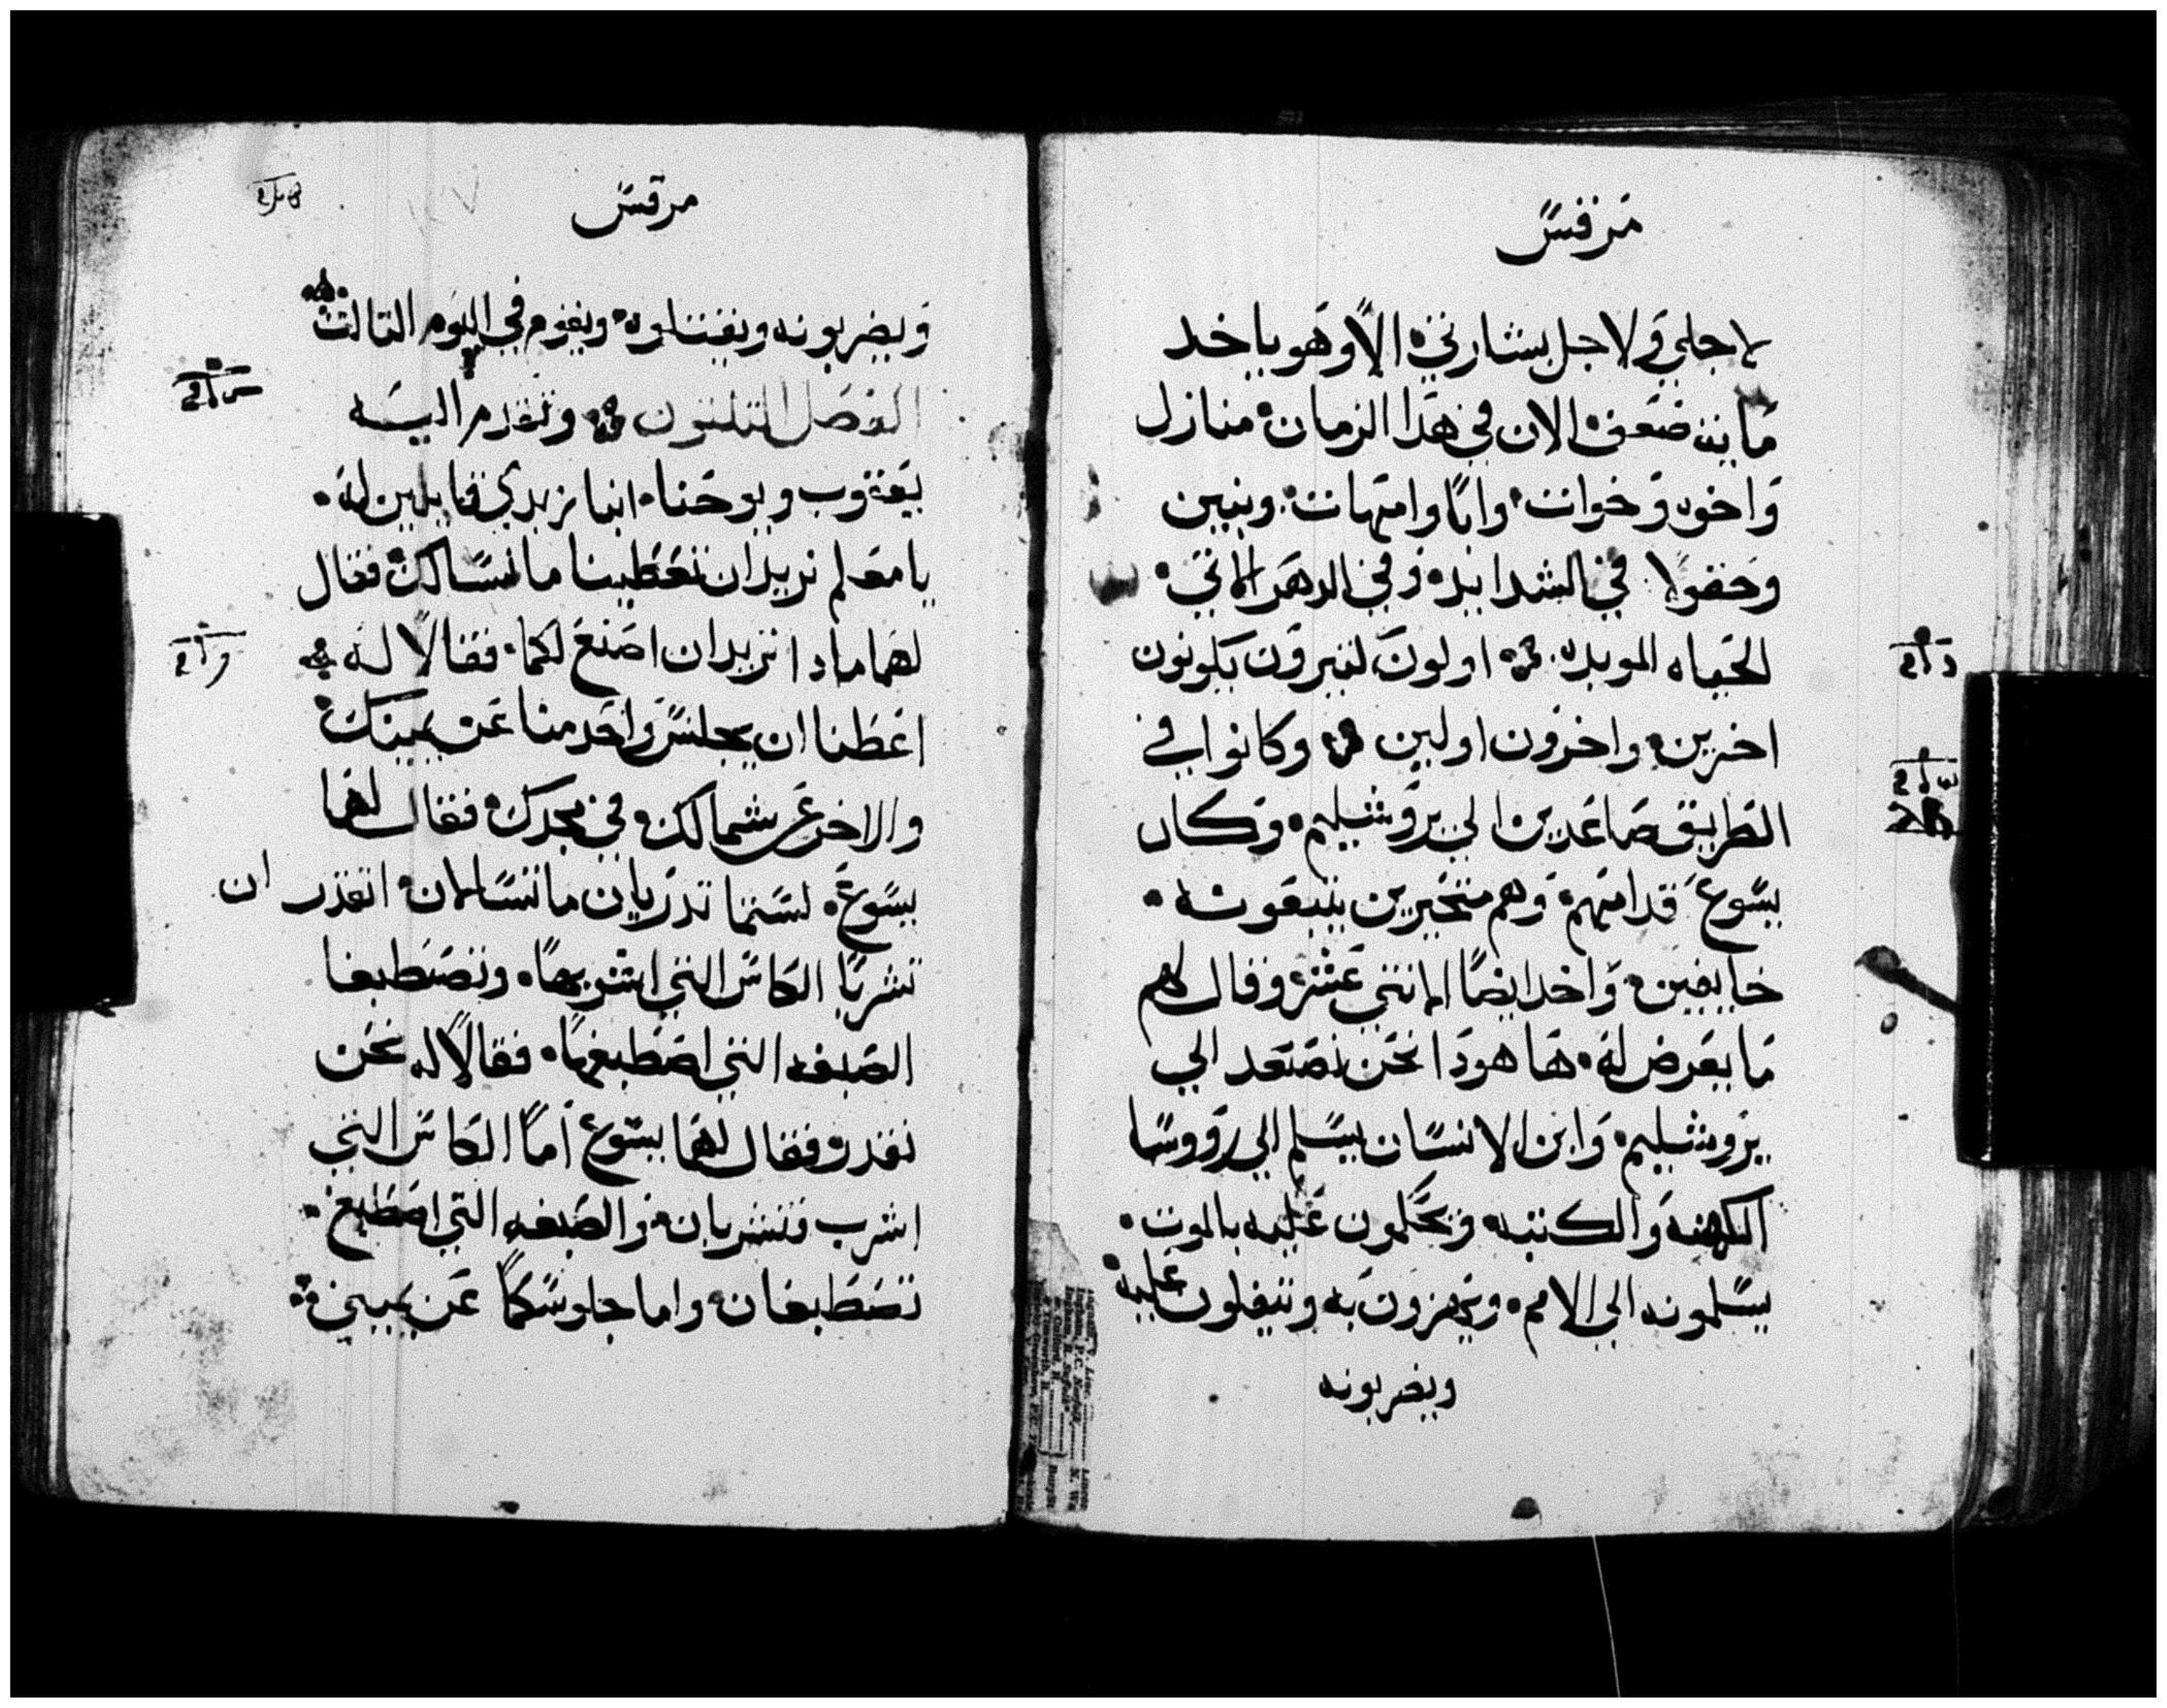 مرقس
لاجلي ولاجل بشارتي الا وهو ياخد
مايه ضعف الان في هدا الزمان منازل
واخوه وخوات وابا وامهات وبنين
وحقولا في الشدايد وفي الدهر الاتي
الحياه الموبده اولون كتيرون يكونون
اخرين واخرون اولين وكانوا في
الطريق صاعدين الي يروشليم وكان
يسوع قدامهم وهم متحيرين يتبعونه
خايفين واخد ايضا الاتني عشر وقال لهم
ما يعرض له ها هودا نحن نصعد الي
يروشليم وابن الانسان يسلم الي رووسا
الكهنه والكتبه ويحكمون عليه بالموت
يسلمونه الي الامم ويهزون به ويتفلون عليه
ويضربونه
مرقس
ويضربونه ويقتلوه ويقوم في اليوم التالت
الفصل التلتون وتقدم اليه
يعقوب ويوحنا ابنا زبدي قايلين له
يامعلم نريد ان تعطينا ما نسالك فقال
لهما مادا تريدان اصنع لكما فقالا له
اعطنا ان يجلس واحد منا عن يمينك
والاخر عن شمالك في مجدك فقال لهما
يسوع لستما تدريان ما تسالان اتقدر ان
تشربا الكاس التي اشربها وتصطبغا
الصبغه التي اصطبغها فقالا له نحن
نقدر فقال لهما يسوع اما الكاس التي
اشرب فتشربان والصبغه التي اصطبغ
تصطبغان واما جلوسكما عن يميني